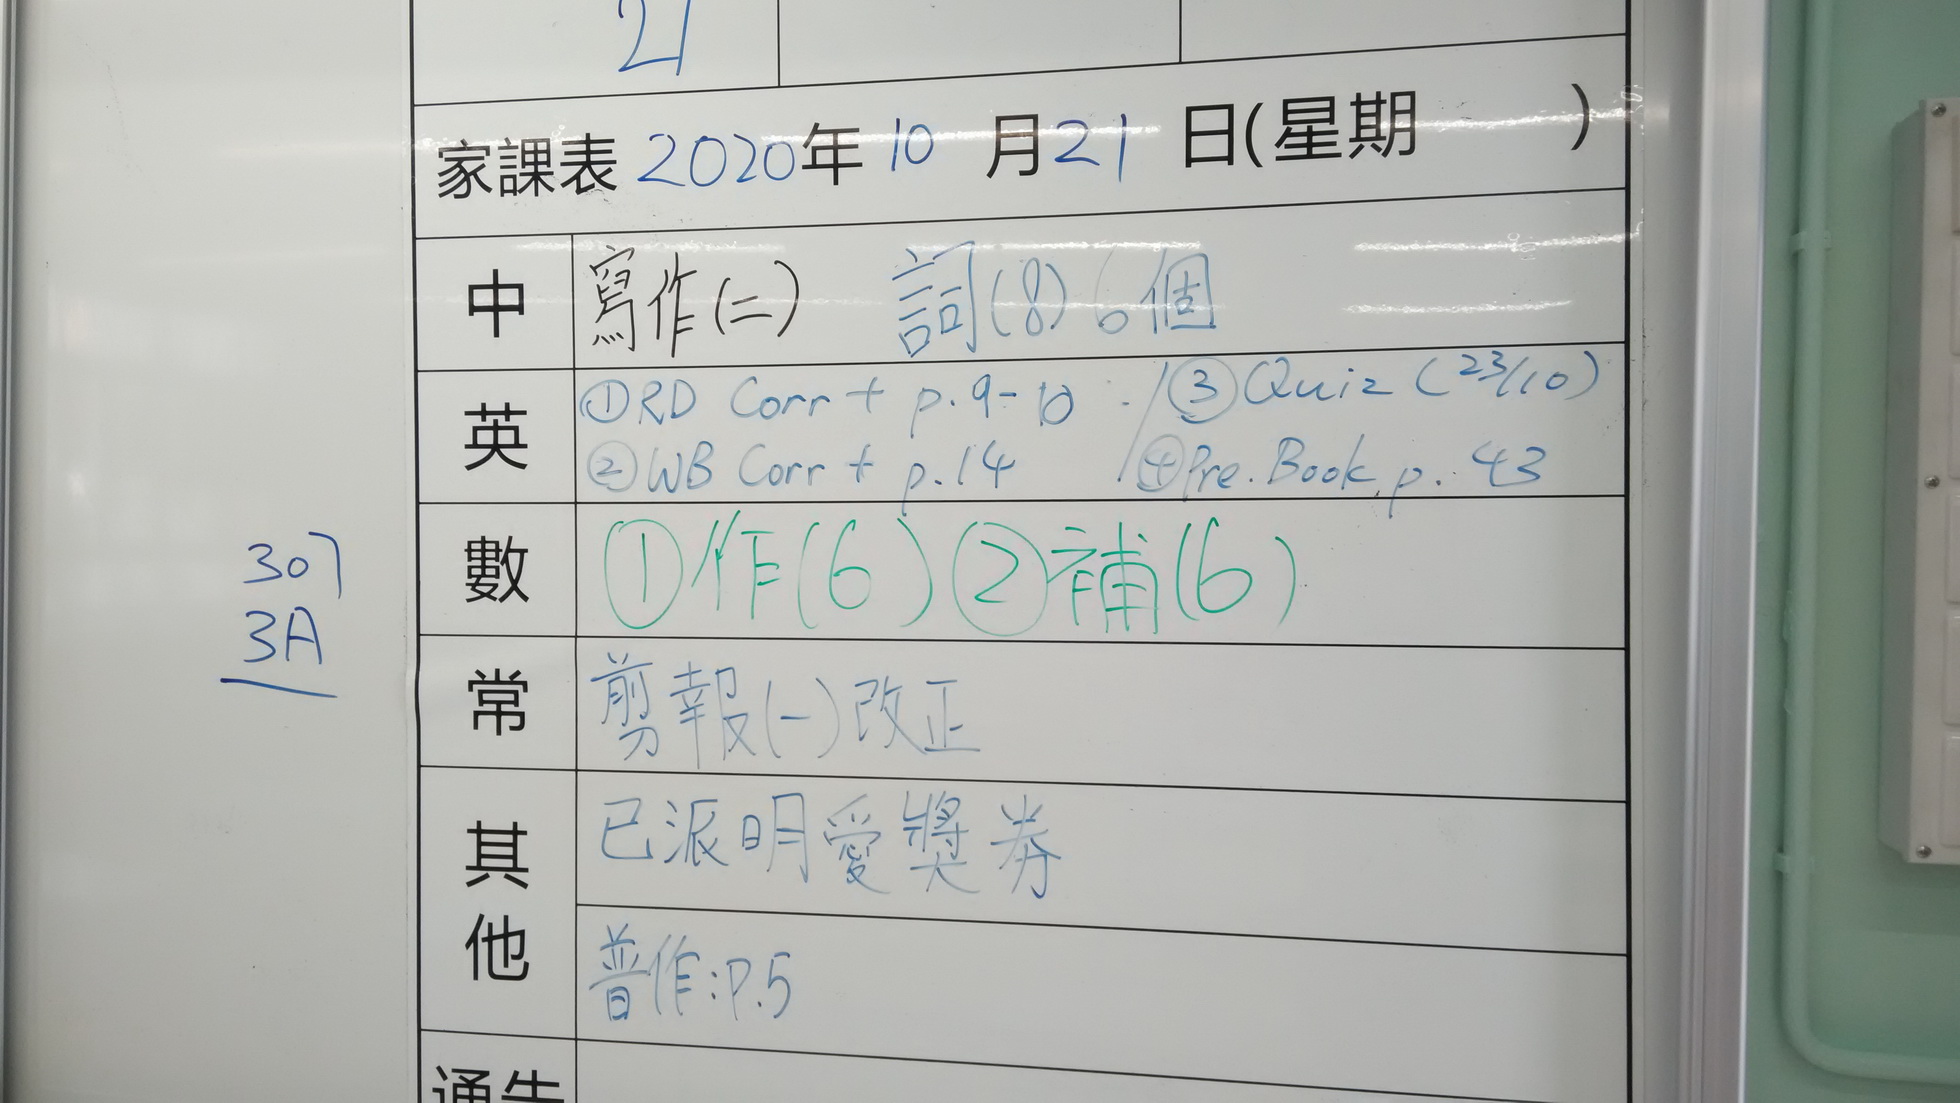 21
家課表 2020年 10 月 21 日(星期 )
中 寫作(二) 詞(8) 6個
英 ①RD Corr + p.9-10 / ③Quiz (23/10)
②WB Corr + p.14 / ④Pre. Book, p. 43
數 ①作(6) ②補(6)
307
3A
常 剪報(一)改正
其他 已派明愛獎券
普作:P.5
通告